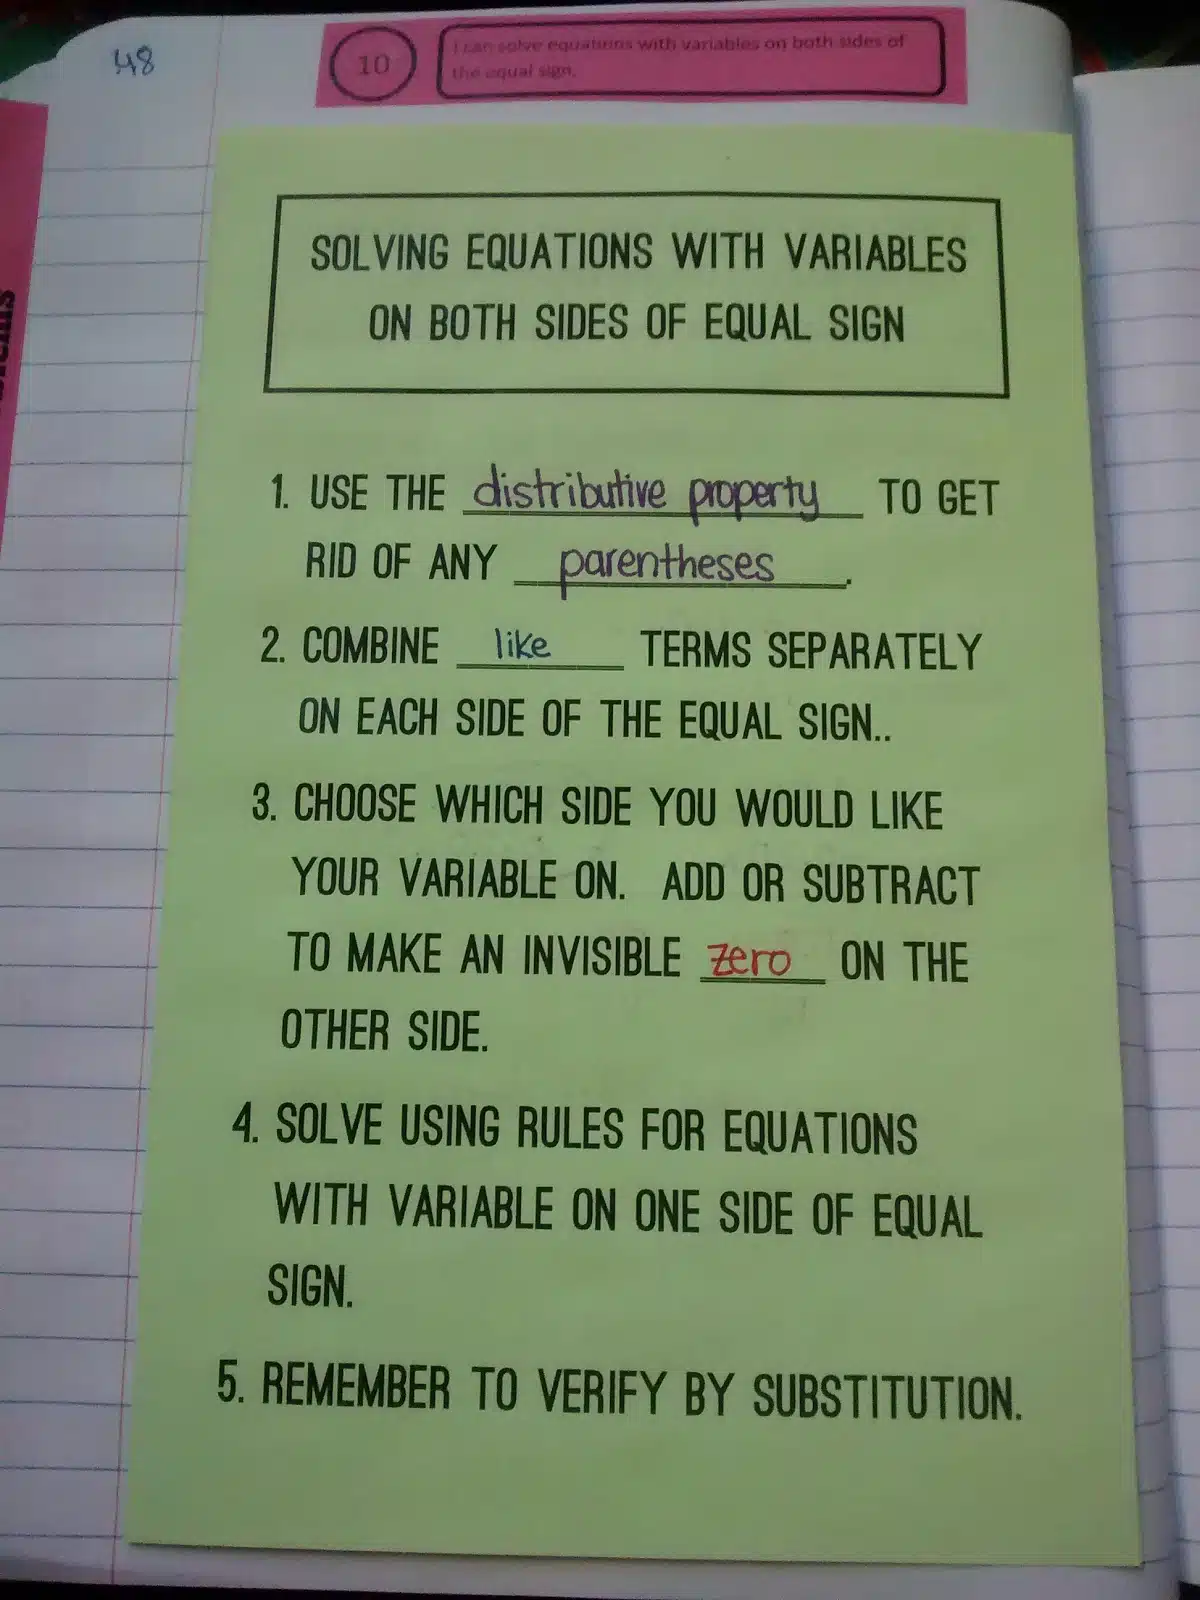 48
10
I can solve equations with variables on both sides of
the equal sign.
SOLVING EQUATIONS WITH VARIABLES
ON BOTH SIDES OF EQUAL SIGN
1. USE THE distributive property TO GET
RID OF ANY parentheses.
2. COMBINE like TERMS SEPARATELY
ON EACH SIDE OF THE EQUAL SIGN..
3. CHOOSE WHICH SIDE YOU WOULD LIKE
YOUR VARIABLE ON. ADD OR SUBTRACT
TO MAKE AN INVISIBLE zero ON THE
OTHER SIDE.
4. SOLVE USING RULES FOR EQUATIONS
WITH VARIABLE ON ONE SIDE OF EQUAL
SIGN.
5. REMEMBER TO VERIFY BY SUBSTITUTION.